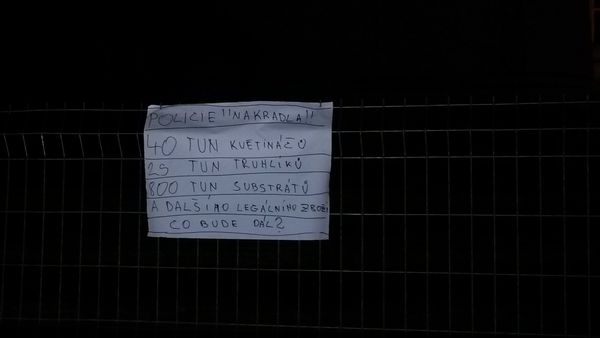 POLICIE "NAKRADLA"
40 TUN KVĚTINÁČŮ
25 TUN TRUHLÍKŮ
800 TUN SUBSTRÁTŮ
A DALŠÍHO LEGÁLNÍHO ZBOŽÍ
CO BUDE DÁL?